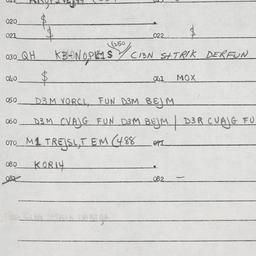 020 $
021 $ 022 $
030 QH KB4NOPLIS (1350) CIBN S4TRIK DERFUN
040 $ 041 MOX
050 D3M VORCL, FUN D3M BEJM
060 D3M CVAJG FUN D3M BEJM | D3R CVAJG FU
070 M1 TREJSLT EM (488 071
080 KOR14
081 082 -